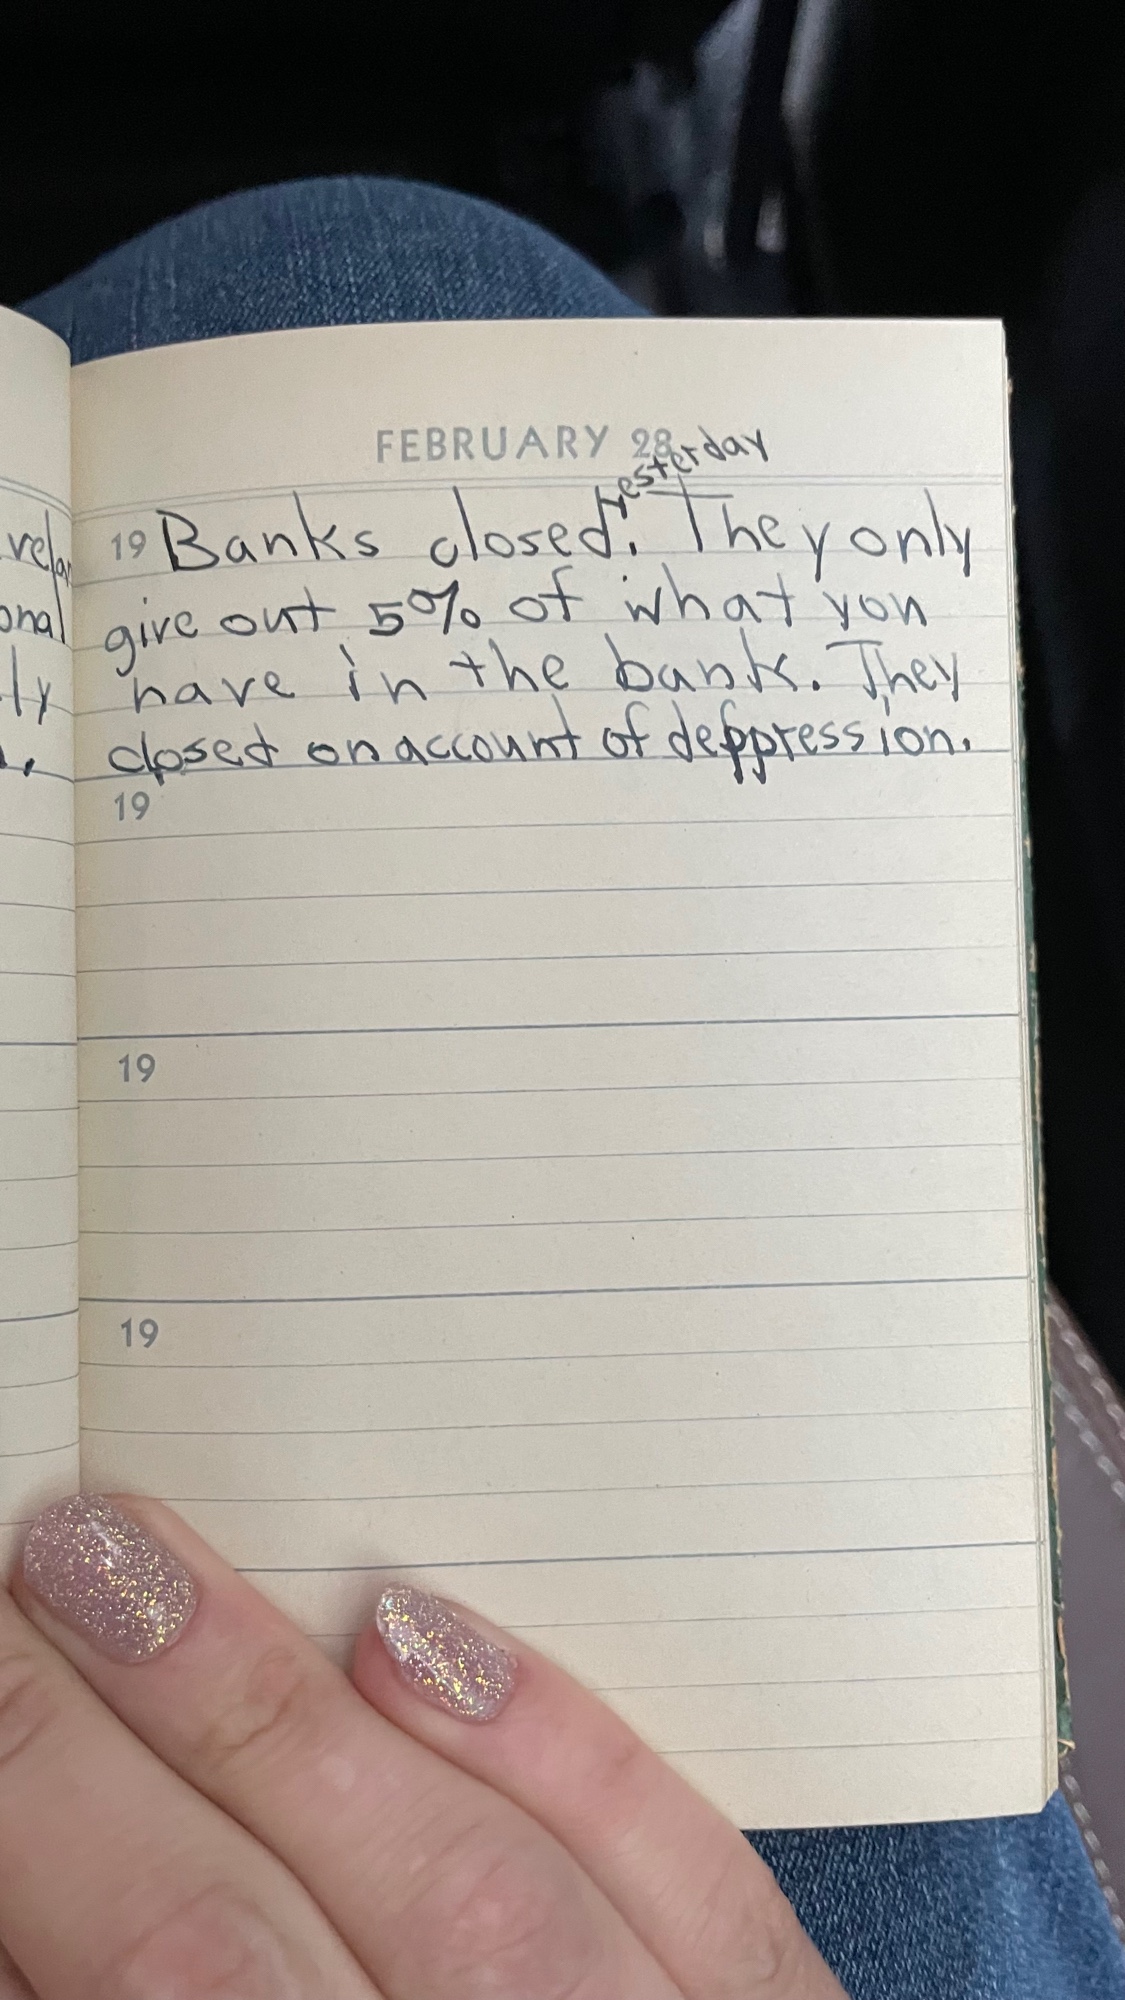 FEBRUARY 28
yesterday
19 Banks closed. They only
give out 5% of what you
have in the bank. They
closed on account of deppression.
19
19
19
onal
ly